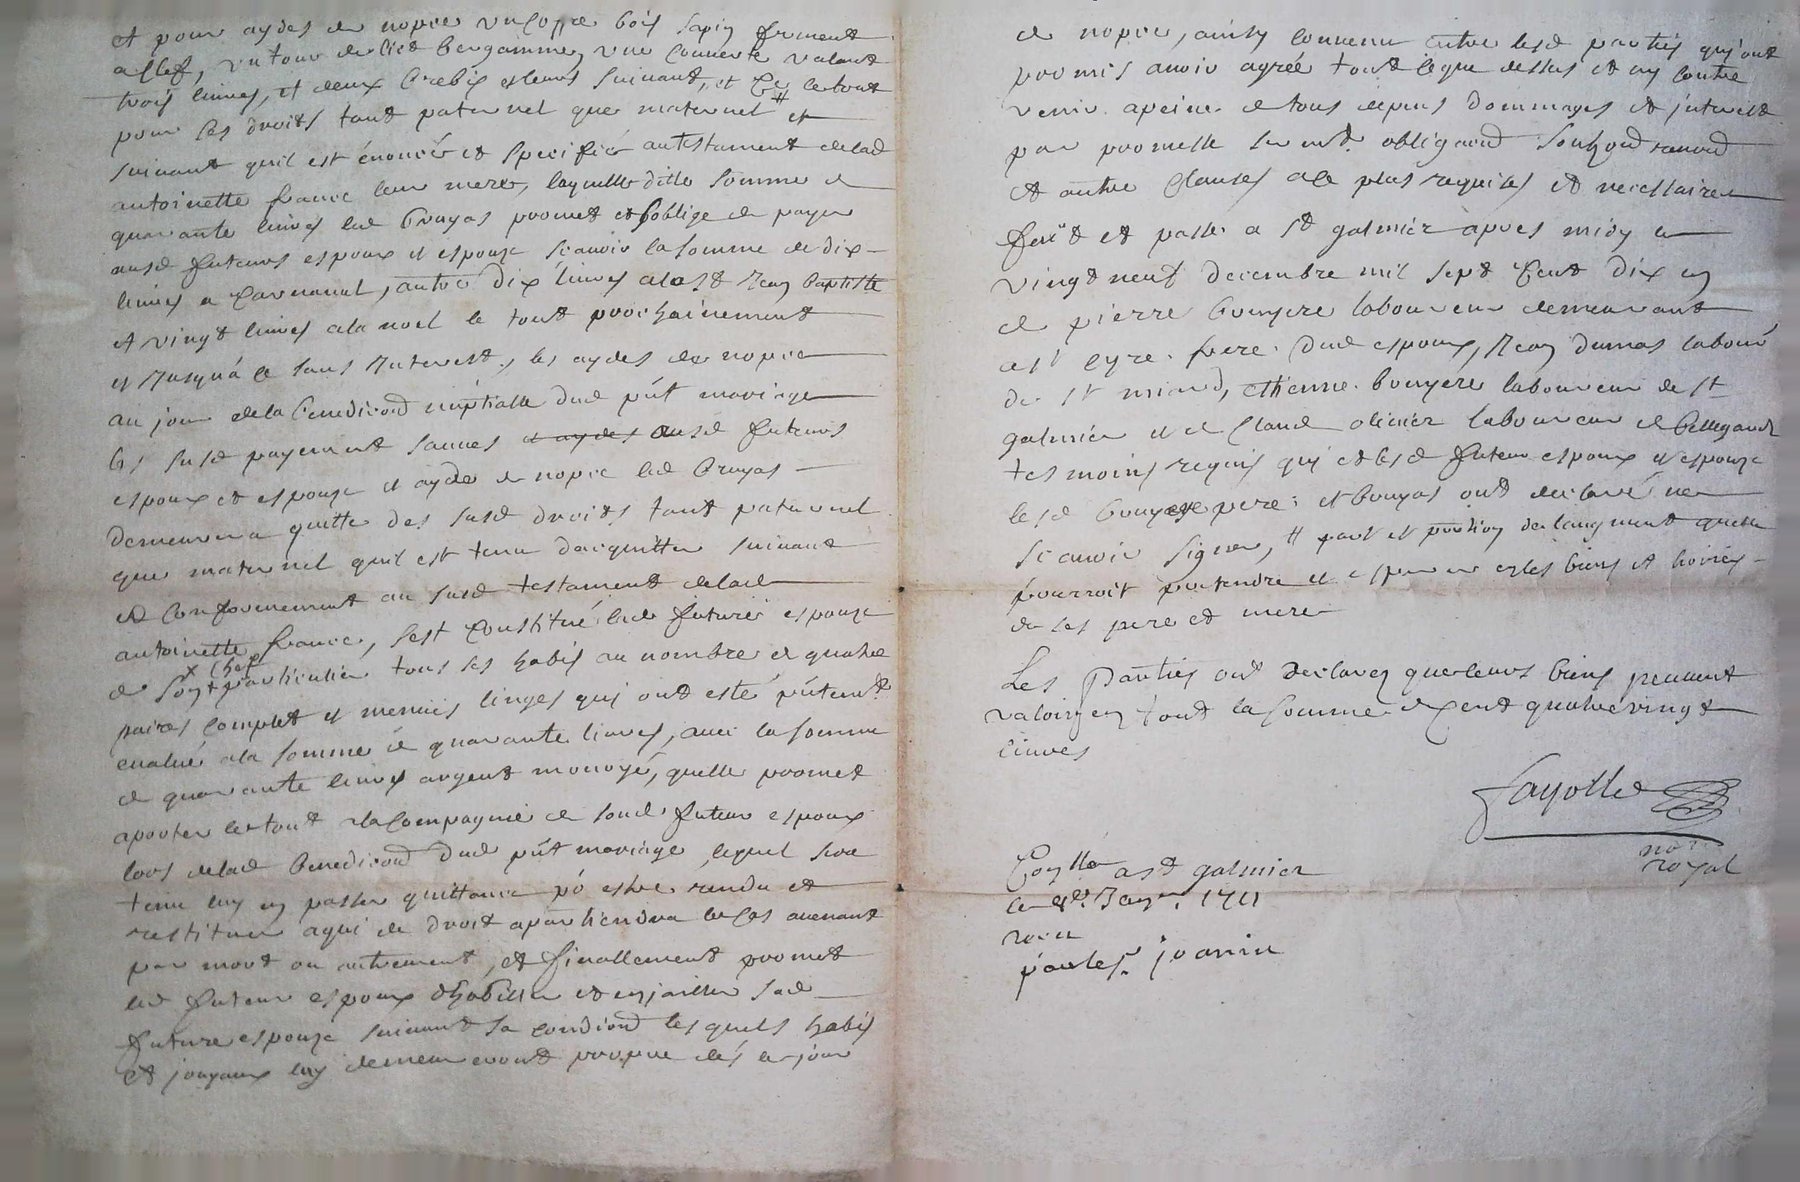 et pour aydes de nopce un coffre bois sapin ferment
a clef, un tour de lict bergamme, une couverte valant
trois livres, et deux brebis et leurs suivant, et ce le tout
pour ses droits tant paternel que maternel # et
suivant quil est énoncée et specifiée au testament de lad
antoinette france leur mere, laquelle ditte somme de
quarante livres led bruyas promet et soblige de payer
ausd futeurs espoux et espouze scavoir la somme de dix
livres a carnaval, autre dix livres a la st Jean baptiste
et vingt livres a la noel le tout prochainement
et Jusqu'a ce sans Interest, les aydes de nopce
au jour de la benediction nuptialle dud pnt mariage
les susd payement ausd futeurs
espoux et espouze et ayde de nopce led bruyas
demeurera quitte des susd droits tant paternel
que maternel quil est tenu dacquitter suivant
et conformement au susd testament de lad
antoinette france, sest constitué lad future espouze
de son chef particulier tous ses habis au nombre de quatre
paires complet et menues linges qui ont esté pntement
evalué a la somme de quarante livres, avec la somme
de quarante livres argent monoyé, quelle promet
aporter le tout a la compagnie de sond futeur espoux
lors de lad benediction dud pnt mariage, lequel sera
tenu luy en passer quittance po estre rendu et
restituer a qui de droit apartiendra le cas avenant
par mort ou autrement, et finallement promet
led futeur espoux d'habiller et enjailler sad
future espouze suivant sa condiond lesquels habis
et jouyaux luy demeureront propre dés le jour
de nopce, ainsy convenu entre lesd parties qui ont
promis avoir agrée tout ce que dessus et ny contre
venir a peine de tous depens dommages et interest
par promesse serment obligaond
et autre clauses a ce plus requises et necessaires
fait et passé a st galmier apres midy le
vingt neuf decembre mil sept cent dix en
de pierre bouyere laboureur demeurant
a st cyre frere dud espoux, Jean dumas labour
de st miard, ethienne bouyere laboureur de st
galmier et de claude olivier laboureur de bellegarde
tesmoins requis qui et lesd futeur espoux et espouze
lesd bouyere pere et bruyas ont declaré ne
scavoir signer, # part et portion de laugment quelle
pourroit pretendre et esperer en les biens et hoiries
de ses pere et mere
Les Parties ont declarez que leurs biens peuvent
valoir en tout la somme de cent quatre vingt
livres
Fayolle
nore
royal
Conllé a st galmier
le 8e Janr. 1711
par les. joanin